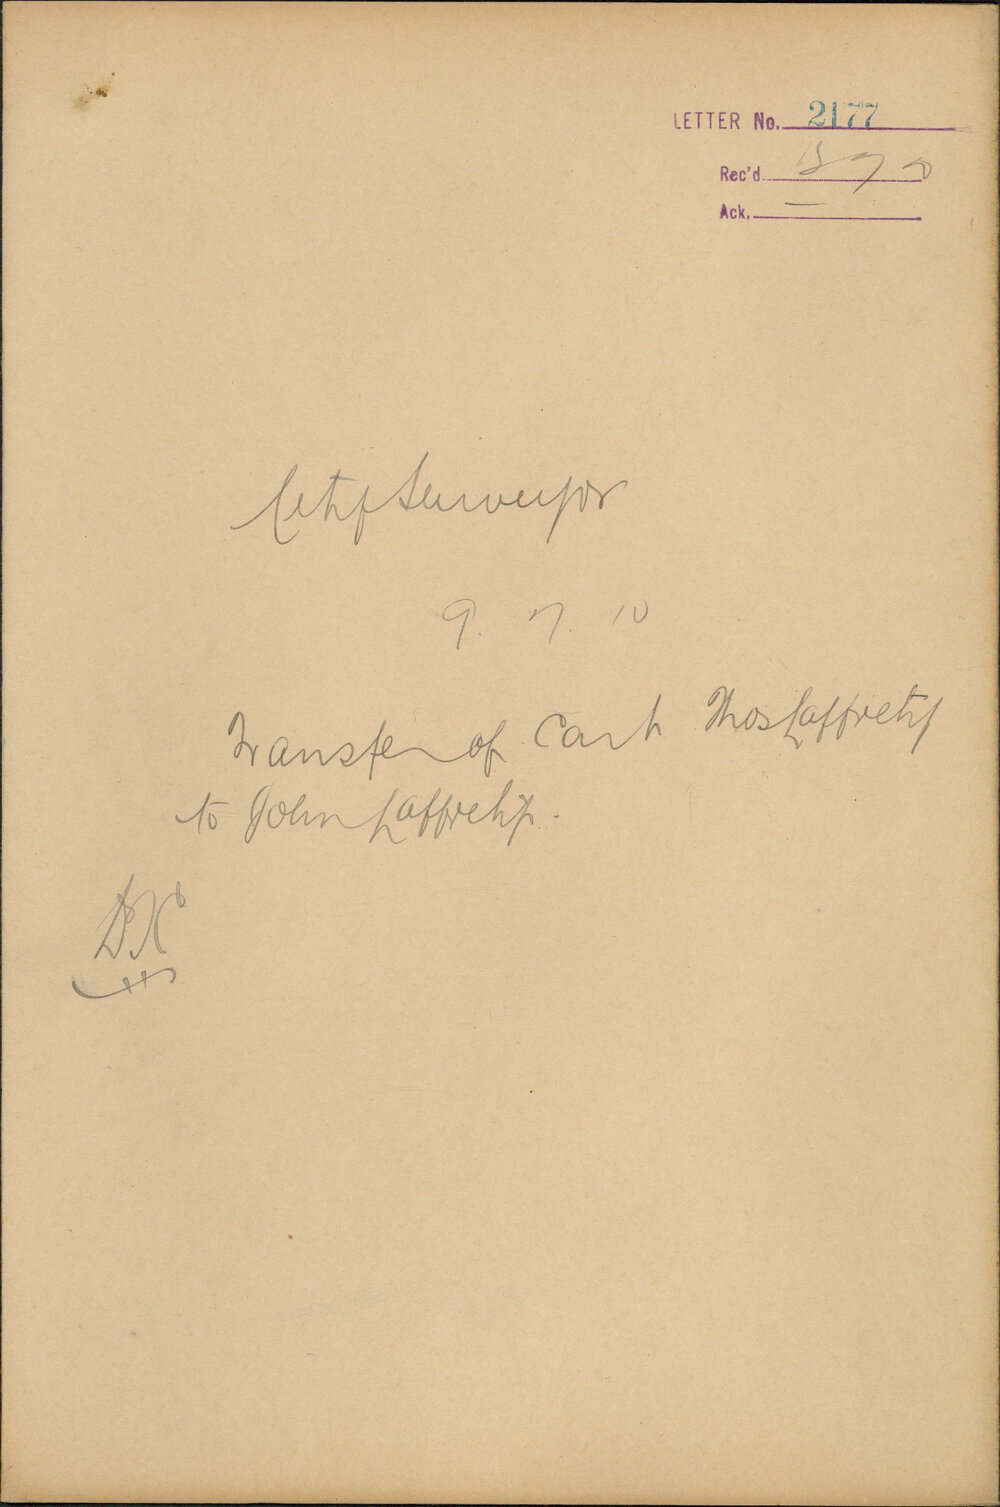 LETTER No. 2177
Rec'd
Ack. —
City Surveyor
9. 7. 10
Transfer of Cart Thos Laffrety
to John Laffrety.